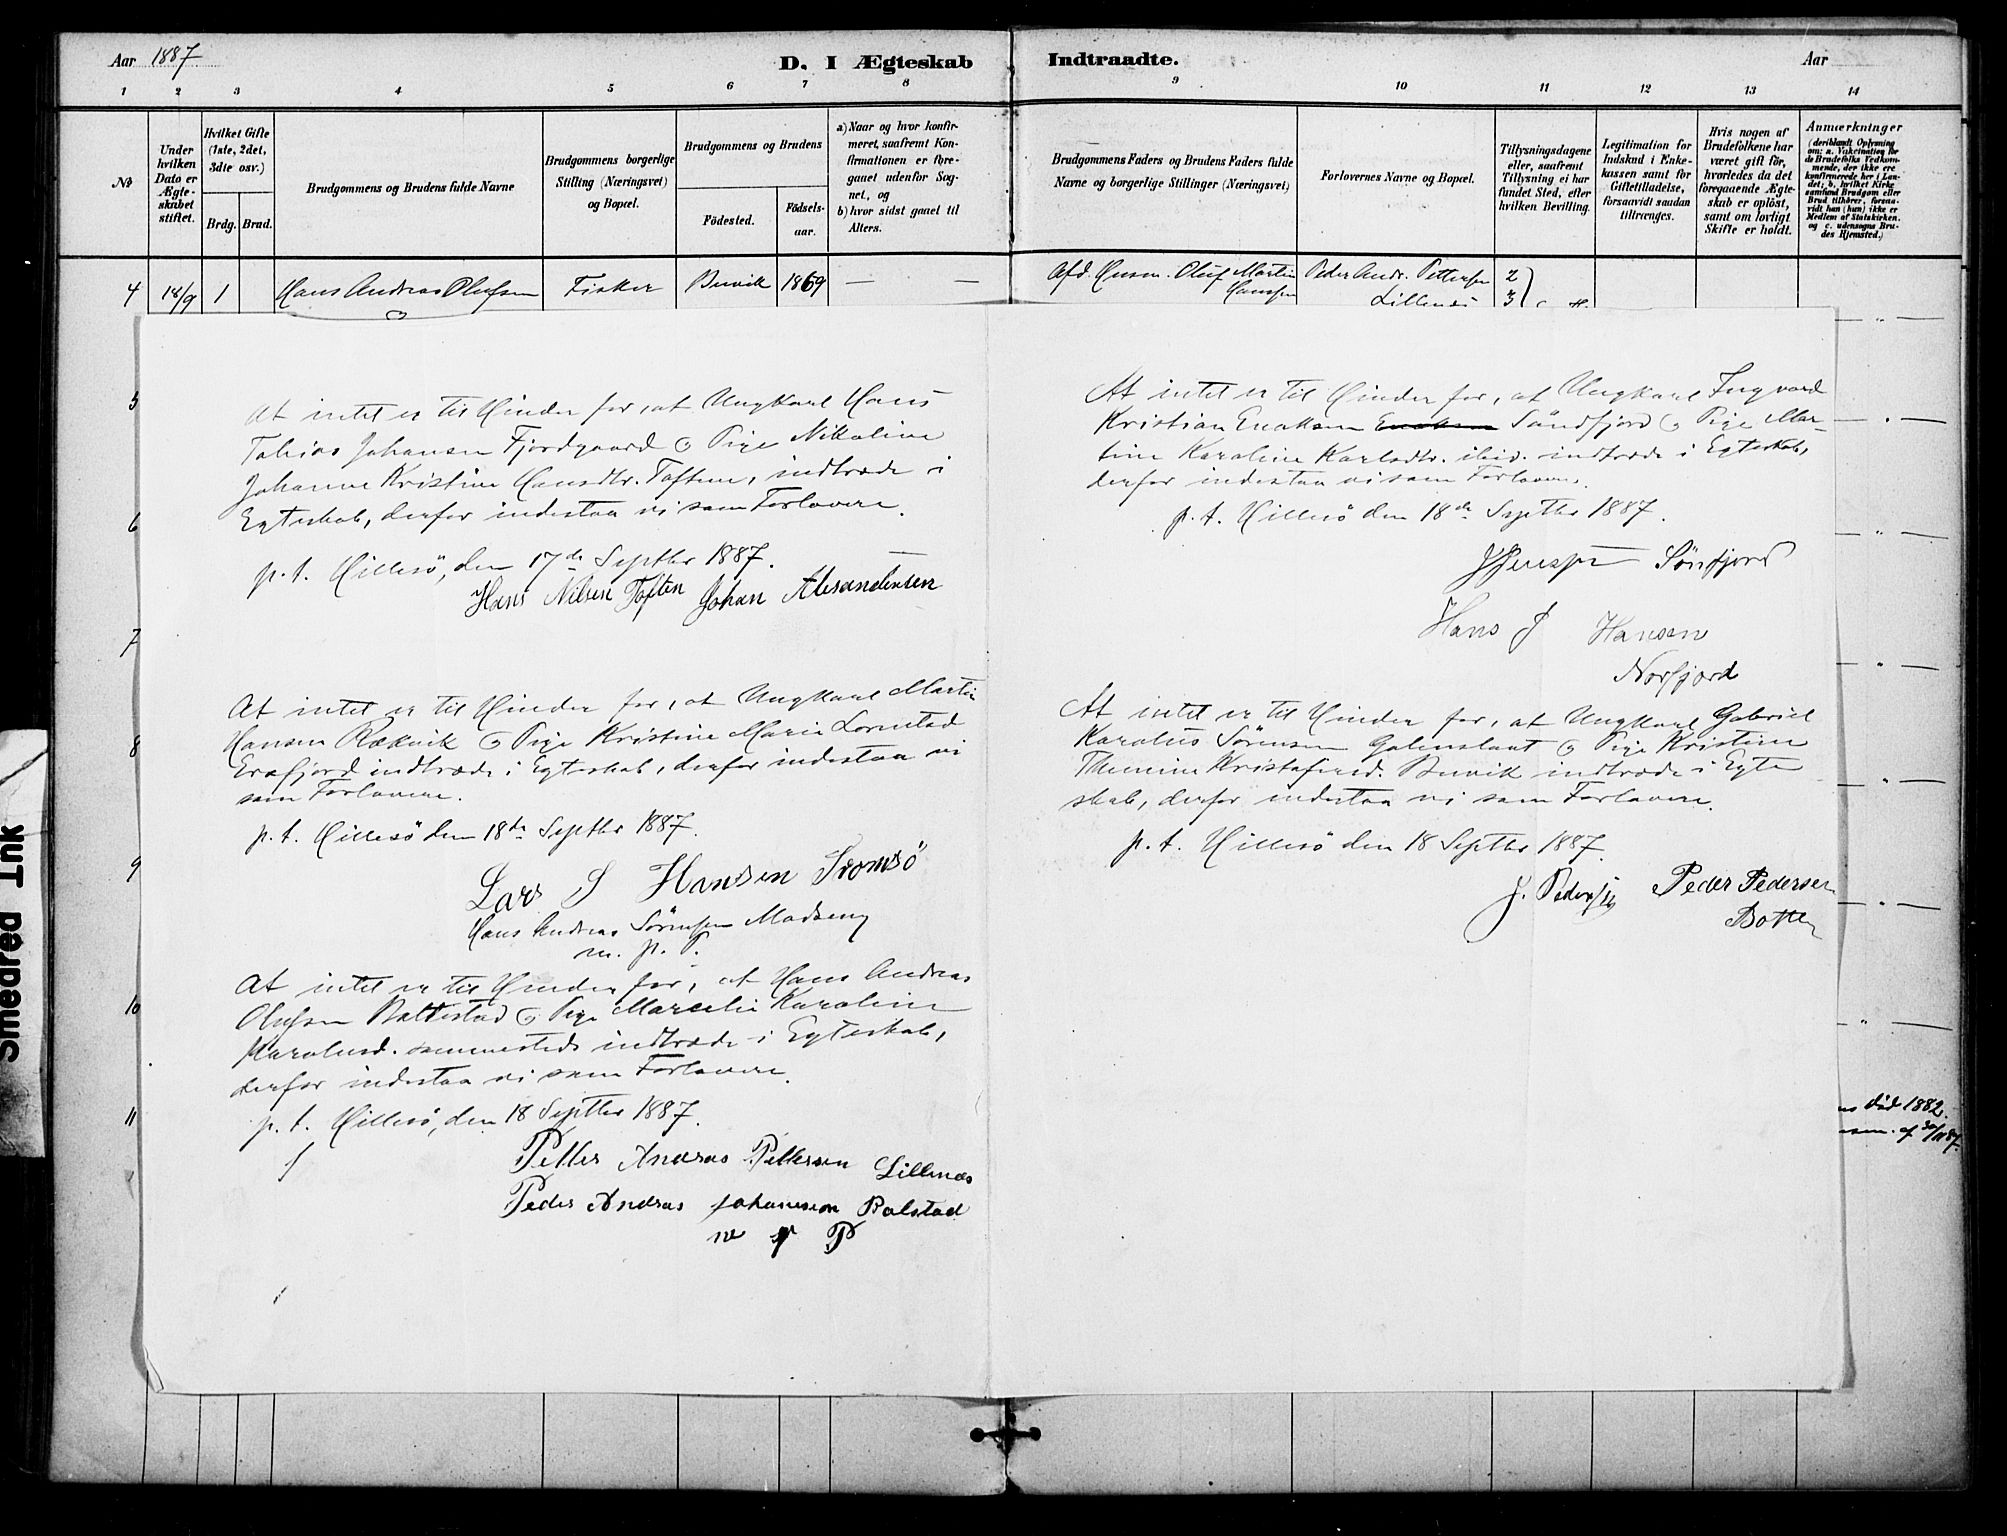 Aar 1887.
D. I Ægteskab Indtraadte.
Aar
1 2 3 4 5 6 7 8 9 10 11 12 13 14
No
Under hvilken Dato er Ægteskabet stiftet.
Hvilket Gifte (1ste, 2det, 3dte osv.)
Brdg. Brud.
Brudgommens og Brudens fulde Navne
Brudgommens borgerlige Stilling (Næringsvei) og Bopæl.
Brudgommens og Brudens
Födested.
Födselsaar.
a) Naar og hvor konfirmeret, saafremt Konfirmationen er foregaaet udenfor Sognet, og
b) hvor sidst gaaet til Alters.
Brudgommens Faders og Brudens Faders fulde Navne og borgerlige Stillinger (Næringsvei)
Forlovernes Navne og Bopæl.
Tillysningsdagene eller, saafremt Tillysning ei har fundet Sted, efter hvilken Bevilling.
Legitimation for Indskud i Enkekassen samt for Giftetilladelse, forsaavidt saadan tiltrænges.
Hvis nogen af Brudefolkene har været gift før, hvorledes da det foregaaende Ægteskab er oplöst, samt om lovligt Skifte er holdt.
Anmærkninger (deriblandt Oplysning om: a. Vakcination for de Brudefolks Vedkommende, der ikke ere konfirmerede her i Landet; b. hvilket Kirkesamfund Brudgom eller Brud tilhører, forsaavidt han (hun) ikke er Medlem af Statskirken. og c. udensogns Brudes Hjemsted.)
4 18/9 1 Hans Andreas Olufsen Fisker Buvik 1869 — — Afd. Husm. Oluf Martin Hanssen Peder Andr. Pettersen Lillenes 2 3
5
6
7
8
9
10
11
At intet er til Hinder for, at Ungkarl Hans
Tobias Johansen Fjordgaard & Pige Nikoline
Johanne Kristine Hansdtr. Toften, indtræde i
Egteskab, derfor indestaa vi som Forlovere.
p. t. Hillesö, den 17de Septbr 1887.
Hans Nilsen Toften Johan Alexandersen
At intet er til Hinder for, at Ungkarl Martin
Hansen Rækvik & Pige Kristine Marie
Ersfjord indtræde i Egteskab, derfor indestaa vi
som Forlovere.
p. t. Hillesö den 18de Septbr 1887.
Lars S Hansen Tromsö
Hans Andreas Sörensen
m. p. P.
At intet er til Hinder for, at Hans Andreas
Olufsen Baltestad & Pige Marcelie Karoline
Karolusd. sammesteds indtræde i Egteskab,
derfor indestaa vi som Forlovere.
p. t. Hillesö, den 18 Septbr 1887.
Petter Andreas Pettersen Lillenes
Peder Andreas Johannesen Balstad
m p P
At intet er til Hinder for, at Ungkarl Ingvard
Kristian Enoksen Enoksen Sandfjord & Pige Mar-
tine Karoline Karlsdtr. ibid. indtræde i Egteskab,
derfor indestaa vi som Forlovere.
p. t. Hillesö den 18de Septbr 1887.
J Jensen Sörfjord
Hans J Hansen
Norfjord
At intet er til Hinder for, at Ungkarl Gabriel
Karolus Sörensen & Pige Kristine
Kristofersd. Buvik indtræde i Egte
skab, derfor indestaa vi som Forlovere.
p. t. Hillesö den 18 Septbr 1887.
J. Pedersen Peder Pedersen
Botten
död 1882.
af 30/11 87.
Smedred Ink